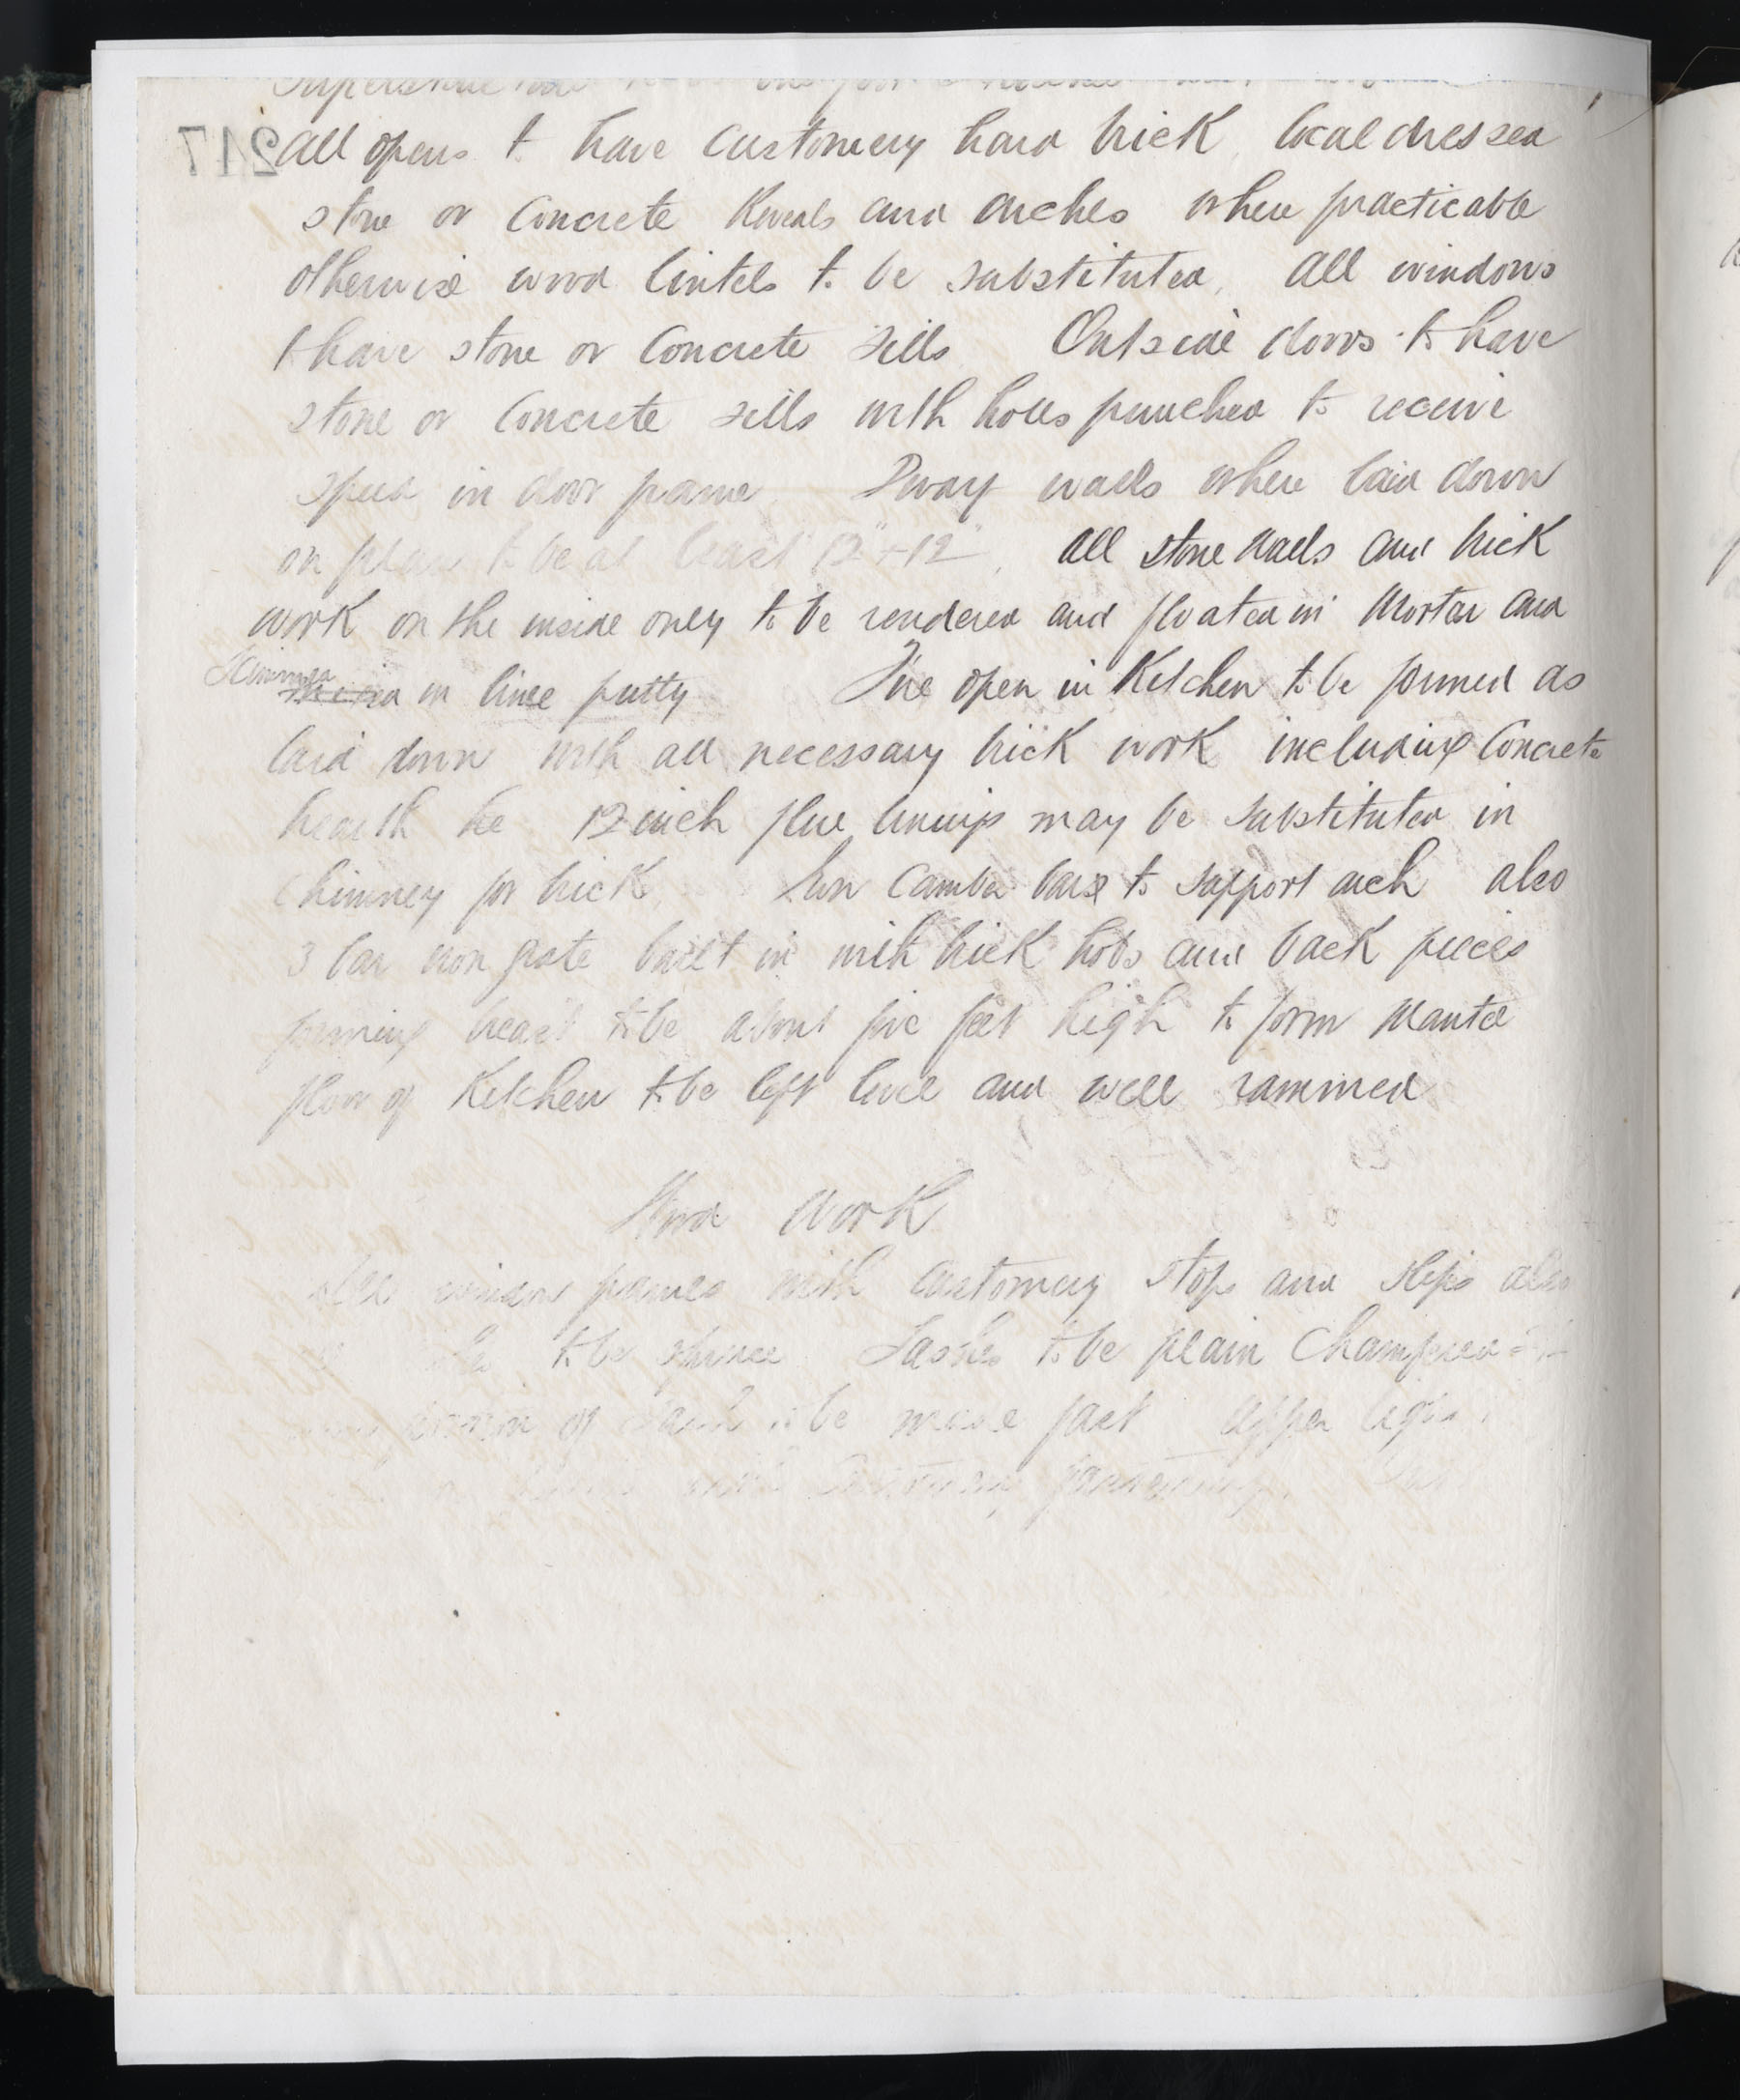 217
all opens to have customery hard brick local dressed
stone or Concrete Reveals and arches where practicable
otherwise wood lintels to be substituted, All windows
to have stone or Concrete sills Outside doors to have
stone or Concrete sills with holes punched to receive
in door frame Dwarf walls where laid down
on plan to be at least 12" + 12", all stone walls and brick
work on the inside only to be rendered and floated in Mortar and
Skimmed in lime putty Fire open in Kitchen to be formed as
laid down with all necessary brick work including Concrete
hearth &c 12 inch flue linings may be substituted in
Chimney for brick, Iron Camber bars to support arch also
3 bar iron grate built in with brick hobs and back pieces
forming breast to be about five feet high to form Mantel
floor of Kitchen to be left level and well rammed
Wood Work
All window frames with customery stops and slips also
to be spruce Sashes to be plain Chamfered
of Sash to be made fast upper light
with Customery fastenings